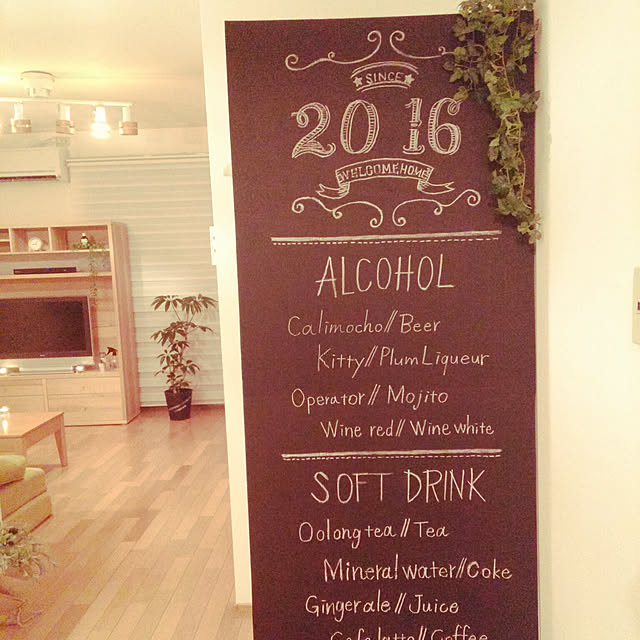 SINCE
2016
WELCOME HOME
ALCOHOL
Calimocho//Beer
Kitty//Plum Liqueur
Operator//Mojito
Wine red//Wine white
SOFT DRINK
Oolong tea//Tea
Mineral water//Coke
Gingerale//Juice
Cafe latte//Coffee